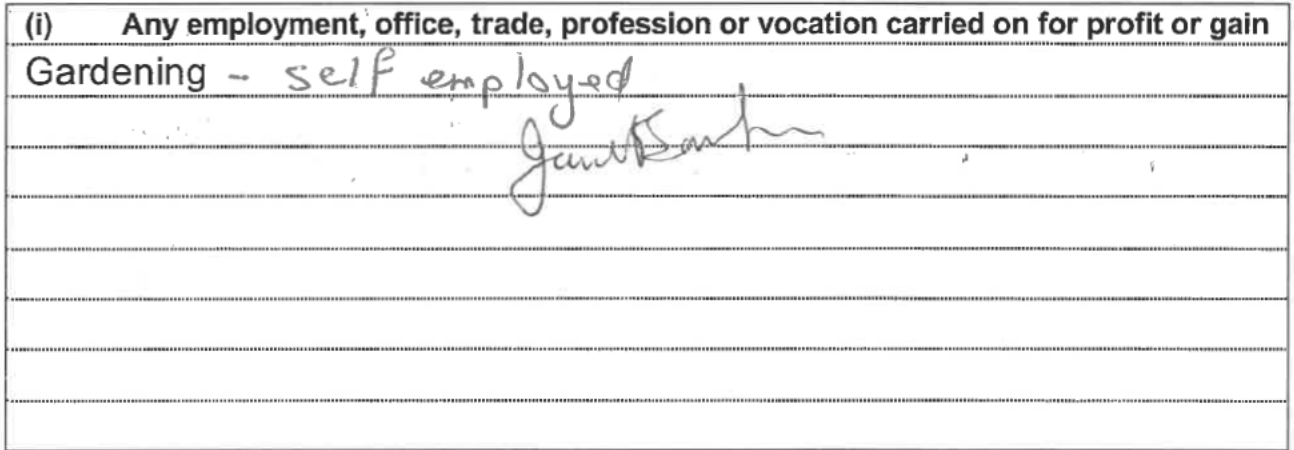 (i) Any employment, office, trade, profession or vocation carried on for profit or gain
Gardening - self employed